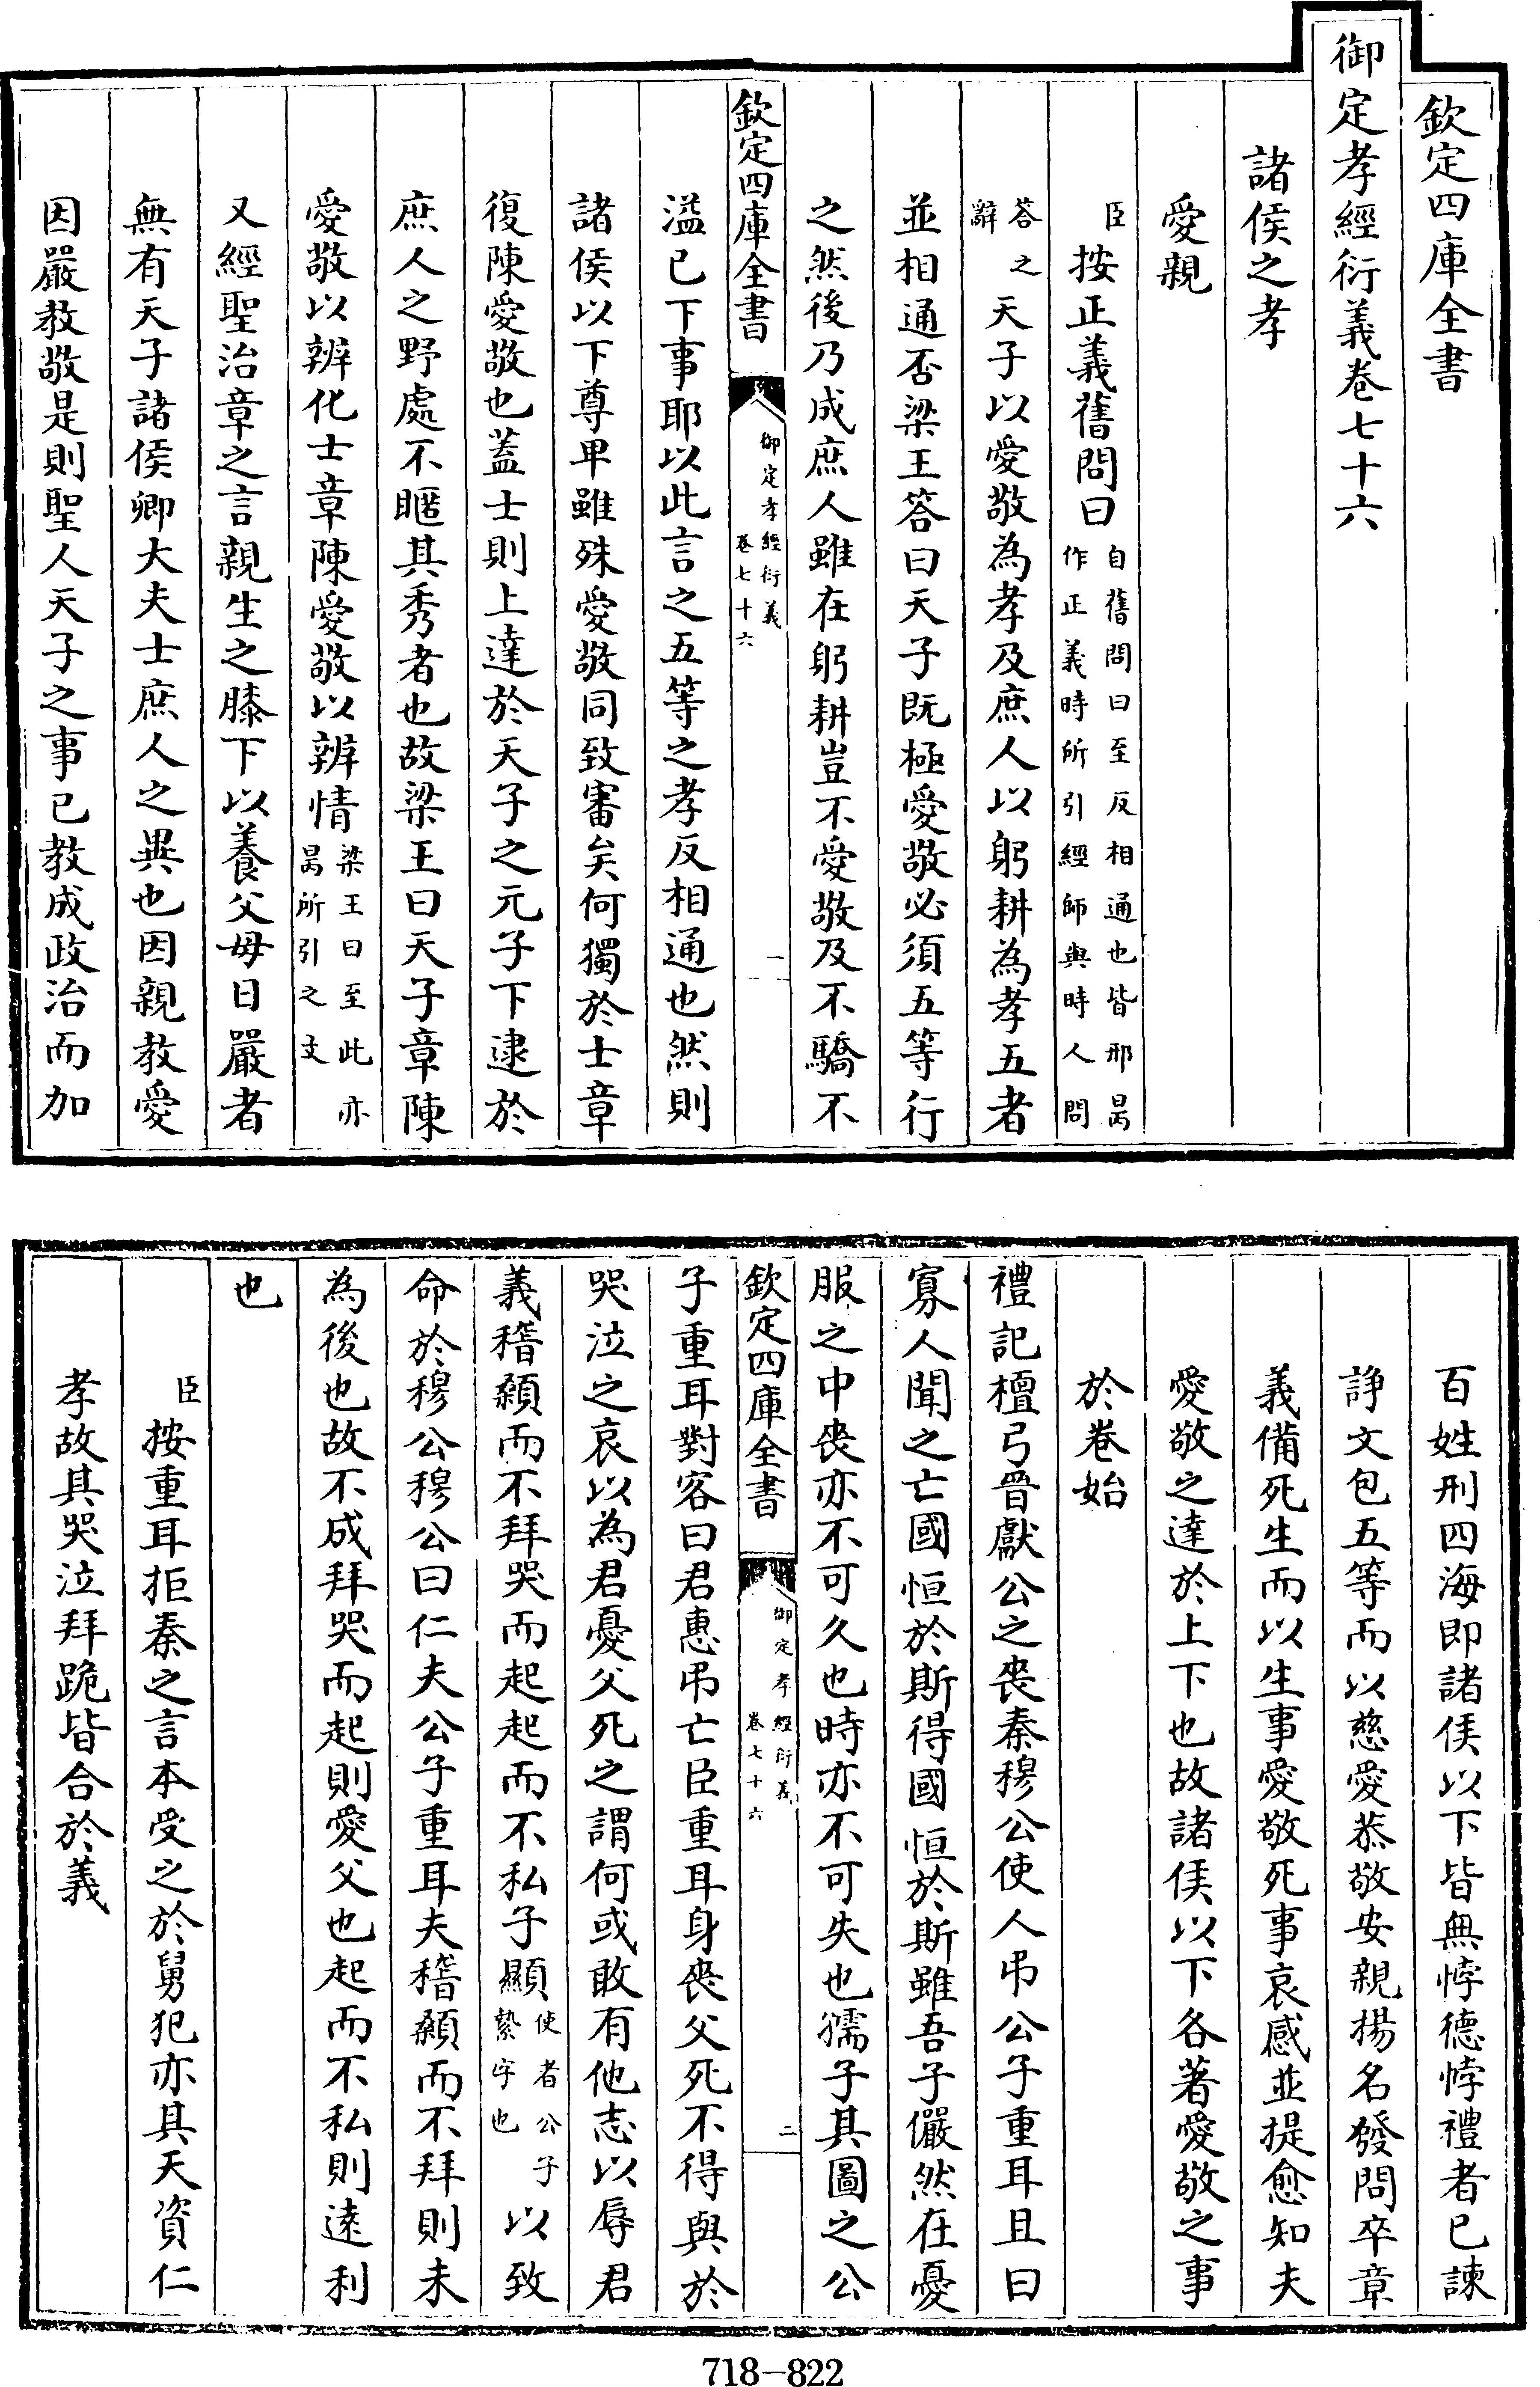 欽定四庫全書
御定孝經衍義卷七十六
諸侯之孝
愛親
臣按正義舊問曰自舊問曰至反相通也皆邢昺作正義時所引經師與時人問
答之辭天子以愛敬為孝及庶人以躬耕為孝五者
並相通否梁王答曰天子既極愛敬必須五等行
之然後乃成庶人雖在躬耕豈不愛敬及不驕不
欽定四庫全書
御定孝經衍義
卷七十六
一
溢已下事耶以此言之五等之孝反相通也然則
諸侯以下尊卑雖殊愛敬同致審矣何獨於士章
復陳愛敬也蓋士則上達於天子之元子下逮於
庶人之野處不暱其秀者也故梁王曰天子章陳
愛敬以辨化士章陳愛敬以辨情梁王曰至此亦昺所引之文
又經聖治章之言親生之膝下以養父母日嚴者
無有天子諸侯卿大夫士庶人之異也因親教愛
因嚴教敬是則聖人天子之事已教成政治而加
百姓刑四海即諸侯以下皆無悖德悖禮者已諫
諍文包五等而以慈愛恭敬安親揚名發問卒章
義備死生而以生事愛敬死事哀慼並提愈知夫
愛敬之達於上下也故諸侯以下各著愛敬之事
於卷始
禮記檀弓晉獻公之喪秦穆公使人弔公子重耳且曰
寡人聞之亡國恒於斯得國恒於斯雖吾子儼然在憂
服之中喪亦不可久也時亦不可失也孺子其圖之公
欽定四庫全書
御定孝經衍義
卷七十六
二
子重耳對客曰君惠弔亡臣重耳身喪父死不得與於
哭泣之哀以為君憂父死之謂何或敢有他志以辱君
義稽顙而不拜哭而起起而不私子顯使者公子縶字也以致
命於穆公穆公曰仁夫公子重耳夫稽顙而不拜則未
為後也故不成拜哭而起則愛父也起而不私則遠利
也
臣按重耳拒秦之言本受之於舅犯亦其天資仁
孝故其哭泣拜跪皆合於義
718-822